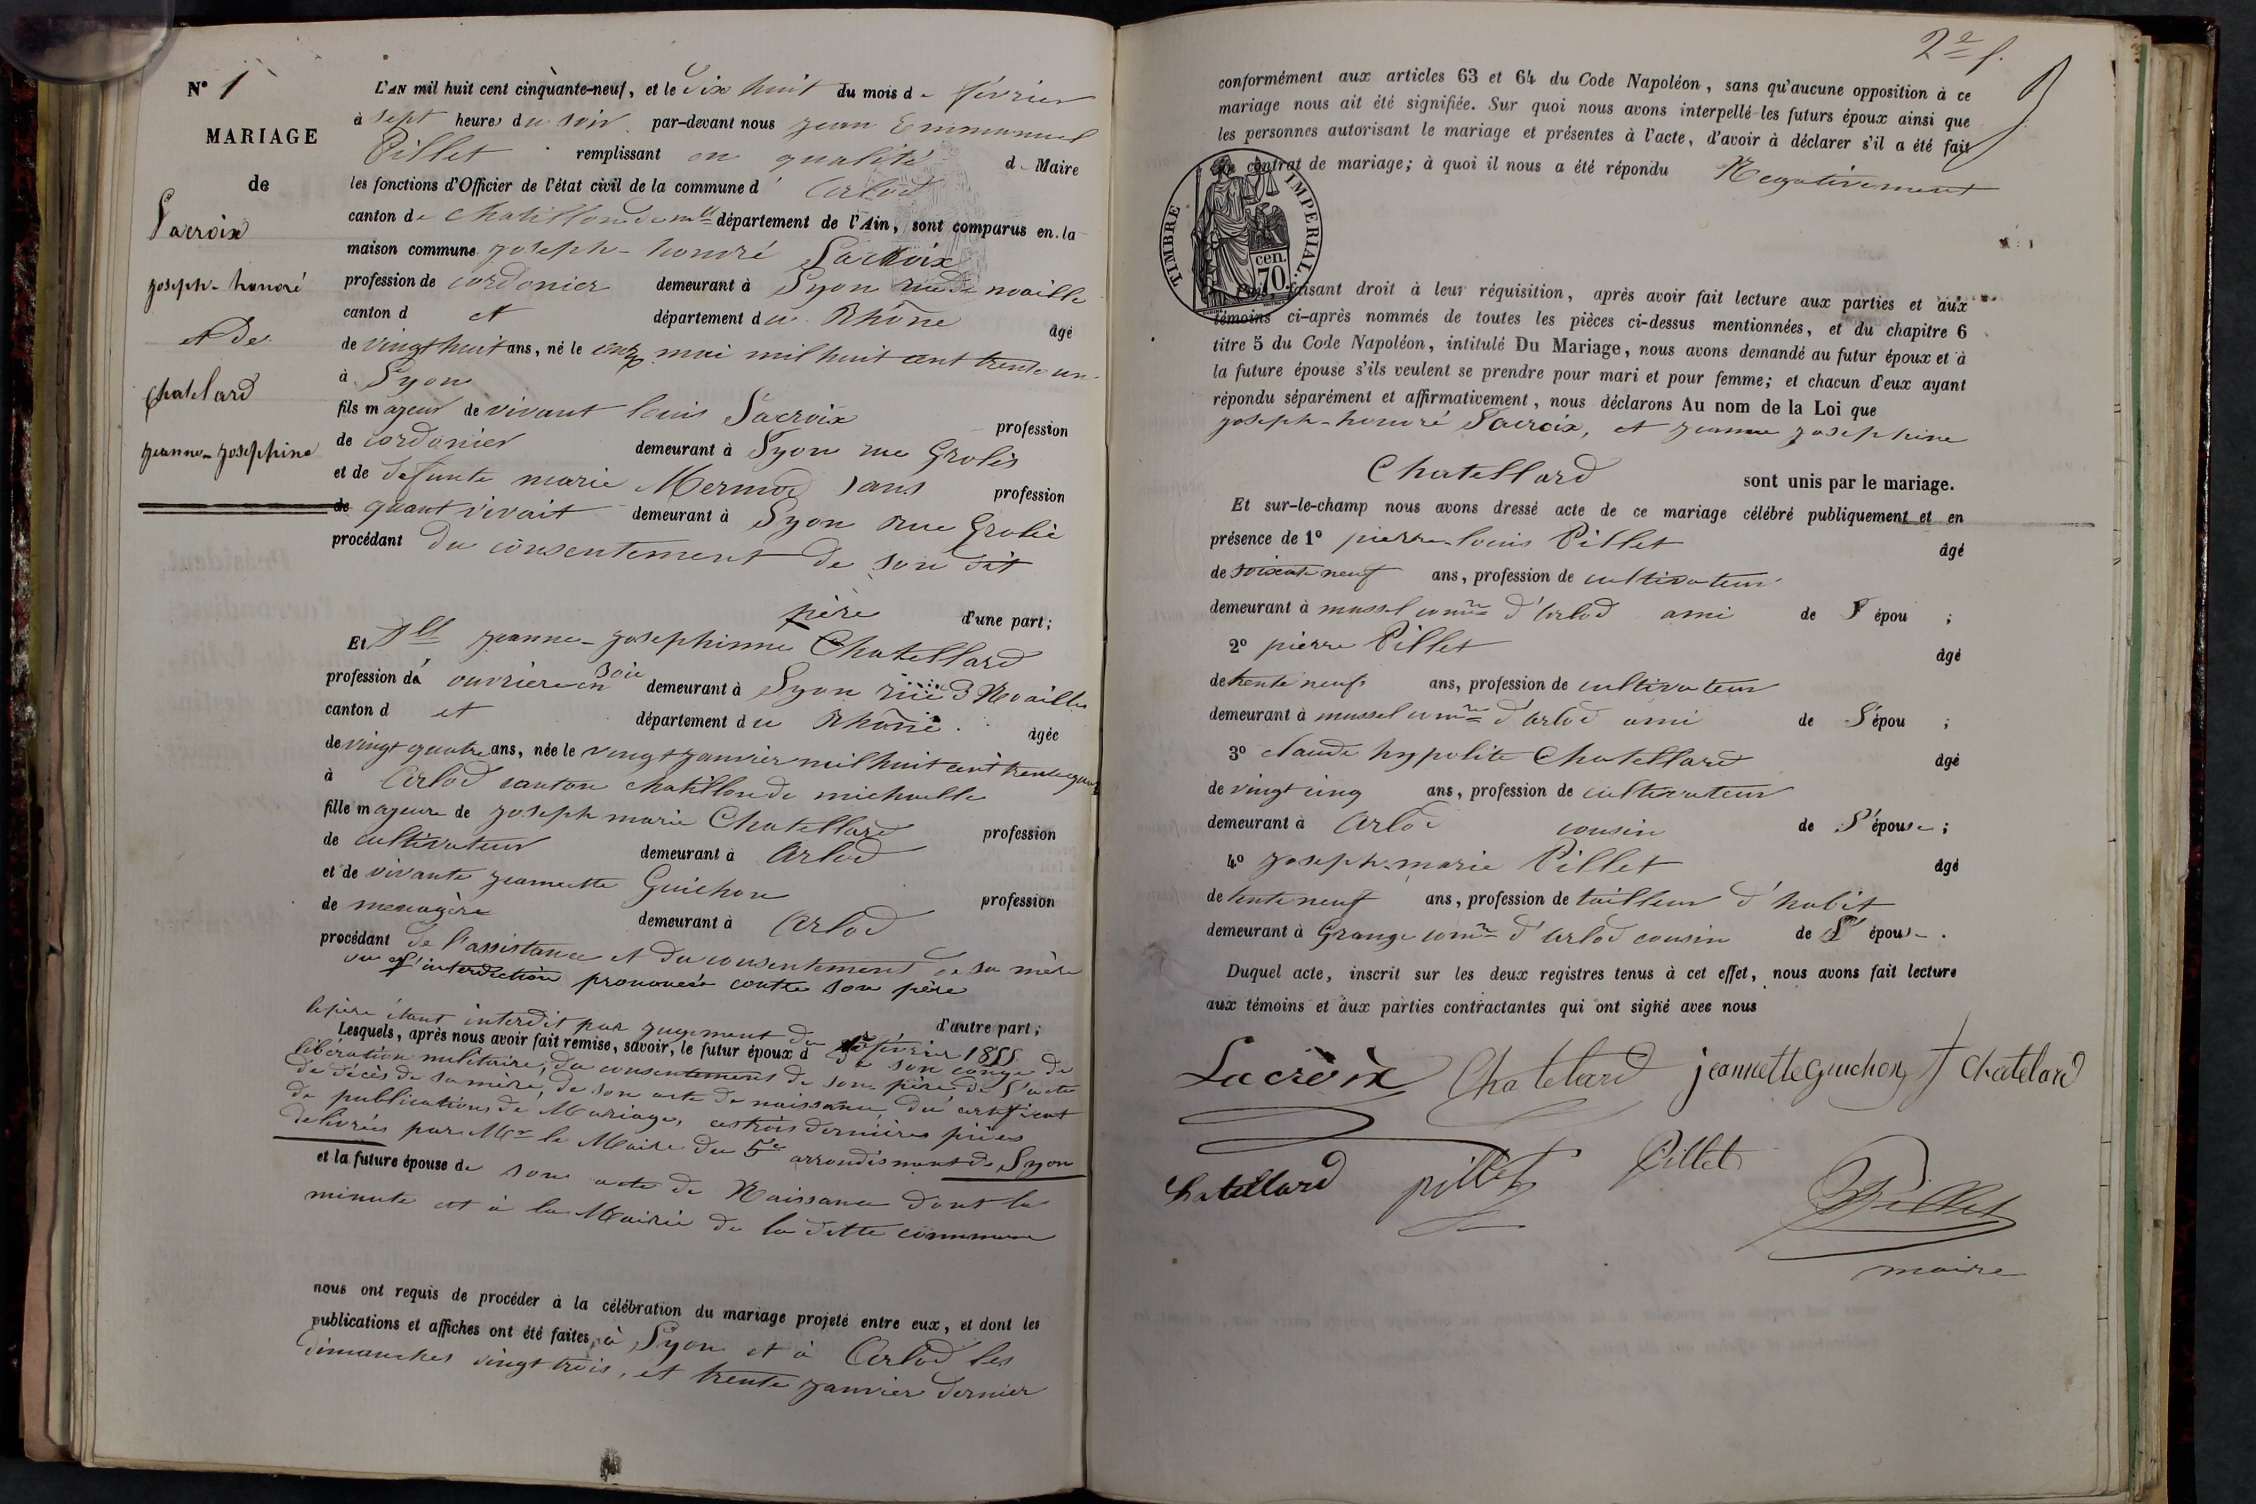 N° 1
MARIAGE
de
Lacroix
joseph-honoré
et de
chatelard
jeanne-josephine
L'AN mil huit cent cinquante-neuf, et le dix huit du mois de février
à sept heures du soir par-devant nous jean Emmanuel
Pillet remplissant en qualité de Maire
les fonctions d'Officier de l'état civil de la commune d'Arlod
canton de chatillon de mlle département de l'Ain, sont comparus en la
maison commune joseph-honoré Lacroix
profession de cordonier demeurant à Lyon rue de noaille
canton d et département du Rhône âgé
de vingt huit ans, né le onze mai mil huit cent trente un
à Lyon
fils majeur de vivant louis Lacroix profession
de cordonier demeurant à Lyon rue Grolés
et de defunte marie Mermod sans profession
de quant vivait demeurant à Lyon rue Grolié
procédant du consentement de son dit
père d'une part;
Et Dlle jeanne-josephinne Chatellard
profession d ouvrière en soie demeurant à Lyon rue 3 Noailles
canton d et département du Rhône âgée
de vingt quatre ans, née le vingt janvier mil huit cent trente quatr
à Arlod canton chatillon de michaille
fille majeure de joseph marie Chatellard profession
de cultivateur demeurant à Arlod
et de vivante jeannette Guichon profession
de menagère demeurant à Arlod
procédant de l'assistance et du consentement de sa mère
vu l'interdiction prononcée contre son père
le père étant interdit par jugement du février 1855 d'autre part;
Lesquels, après nous avoir fait remise, savoir, le futur époux d de son congé de
libération militaire, du consentement de son père, de l'acte
de décès de sa mère, de son acte de naissance, du certificat
de publications de Mariage, ces trois dernières pièces
delivrées par Mr le Maire du 5e arrondisment de Lyon
et la future épouse de son acte de Naissance dont la
minute est à la Mairie de la ditte commune
nous ont requis de procéder à la célébration du mariage projeté entre eux, et dont les
publications et affiches ont été faites, à Lyon et à Arlod les
dimanches vingt trois, et trente janvier dernier
2e f.
conformément aux articles 63 et 64 du Code Napoléon, sans qu'aucune opposition à ce
mariage nous ait été signifiée. Sur quoi nous avons interpellé les futurs époux ainsi que
les personnes autorisant le mariage et présentes à l'acte, d'avoir à déclarer s'il a été fait
contrat de mariage; à quoi il nous a été répondu Negativement
TIMBRE IMPERIAL.
cen. 70
faisant droit à leur réquisition, après avoir fait lecture aux parties et aux
témoins ci-après nommés de toutes les pièces ci-dessus mentionnées, et du chapitre 6
titre 5 du Code Napoléon, intitulé Du Mariage, nous avons demandé au futur époux et à
la future épouse s'ils veulent se prendre pour mari et pour femme; et chacun d'eux ayant
répondu séparément et affirmativement, nous déclarons Au nom de la Loi que
joseph-honoré Lacroix, et jeanne josephine
Chatellard sont unis par le mariage.
Et sur-le-champ nous avons dressé acte de ce mariage célébré publiquement et en
présence de 1° pierre-louis Pillet âgé
de soixante neuf ans, profession de cultivateur
demeurant à mussel comne d'Arlod ami de l'épou ;
2° pierre Pillet âgé
de trente neuf ans, profession de cultivateur
demeurant à mussel comne d'arlod ami de l'épou ;
3° claude hypolite Chatellard âgé
de vingt cinq ans, profession de cultivateur
demeurant à Arlod cousin de l'épouse ;
4° joseph-marie Pillet âgé
de trente neuf ans, profession de tailleur d'habit
demeurant à Grange comne d'arlod cousin de l'épouse.
Duquel acte, inscrit sur les deux registres tenus à cet effet, nous avons fait lecture
aux témoins et aux parties contractantes qui ont signé avec nous
Lacroix Chatelard jeannette guichon chatelard
chatellard pillet Pillet Pillet
maire